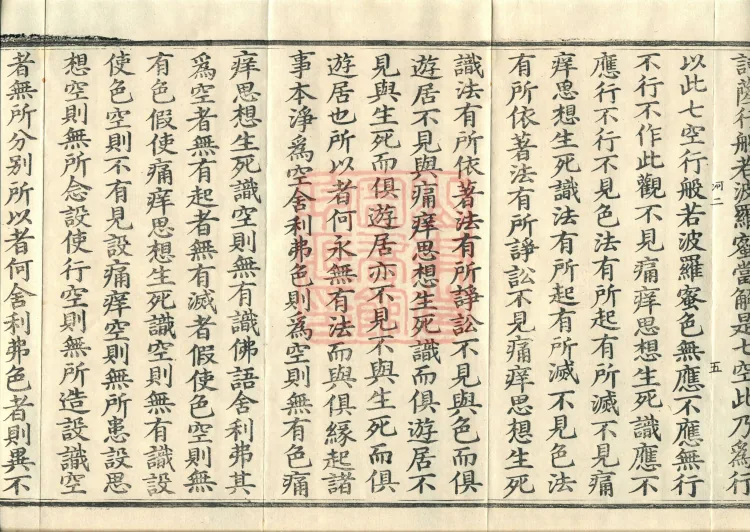 訶薩行般若波羅蜜當解是七空此乃爲行
河二 五
以此七空行般若波羅蜜色無應不應無行
不行不作此觀不見痛痒思想生死識應不
應行不行不見色法有所起有所滅不見痛
痒思想生死識法有所起有所滅不見色法
有所依著法有所諍訟不見痛痒思想生死
識法有所依著法有所諍訟不見與色而俱
遊居不見與痛痒思想生死識而俱遊居不
見與生死而俱遊居亦不見不與生死而俱
遊居也所以者何永無有法而與俱緣起諸
事本淨爲空舍利弗色則爲空則無有色痛
痒思想生死識空則無有識佛語舍利弗其
爲空者無有起者無有滅者假使色空則無
有色假使痛痒思想生死識空則無有識設
使色空則不有見設痛痒空則無所患設思
想空則無所念設使行空則無所造設識空
者無所分別所以者何舍利弗色者則異不